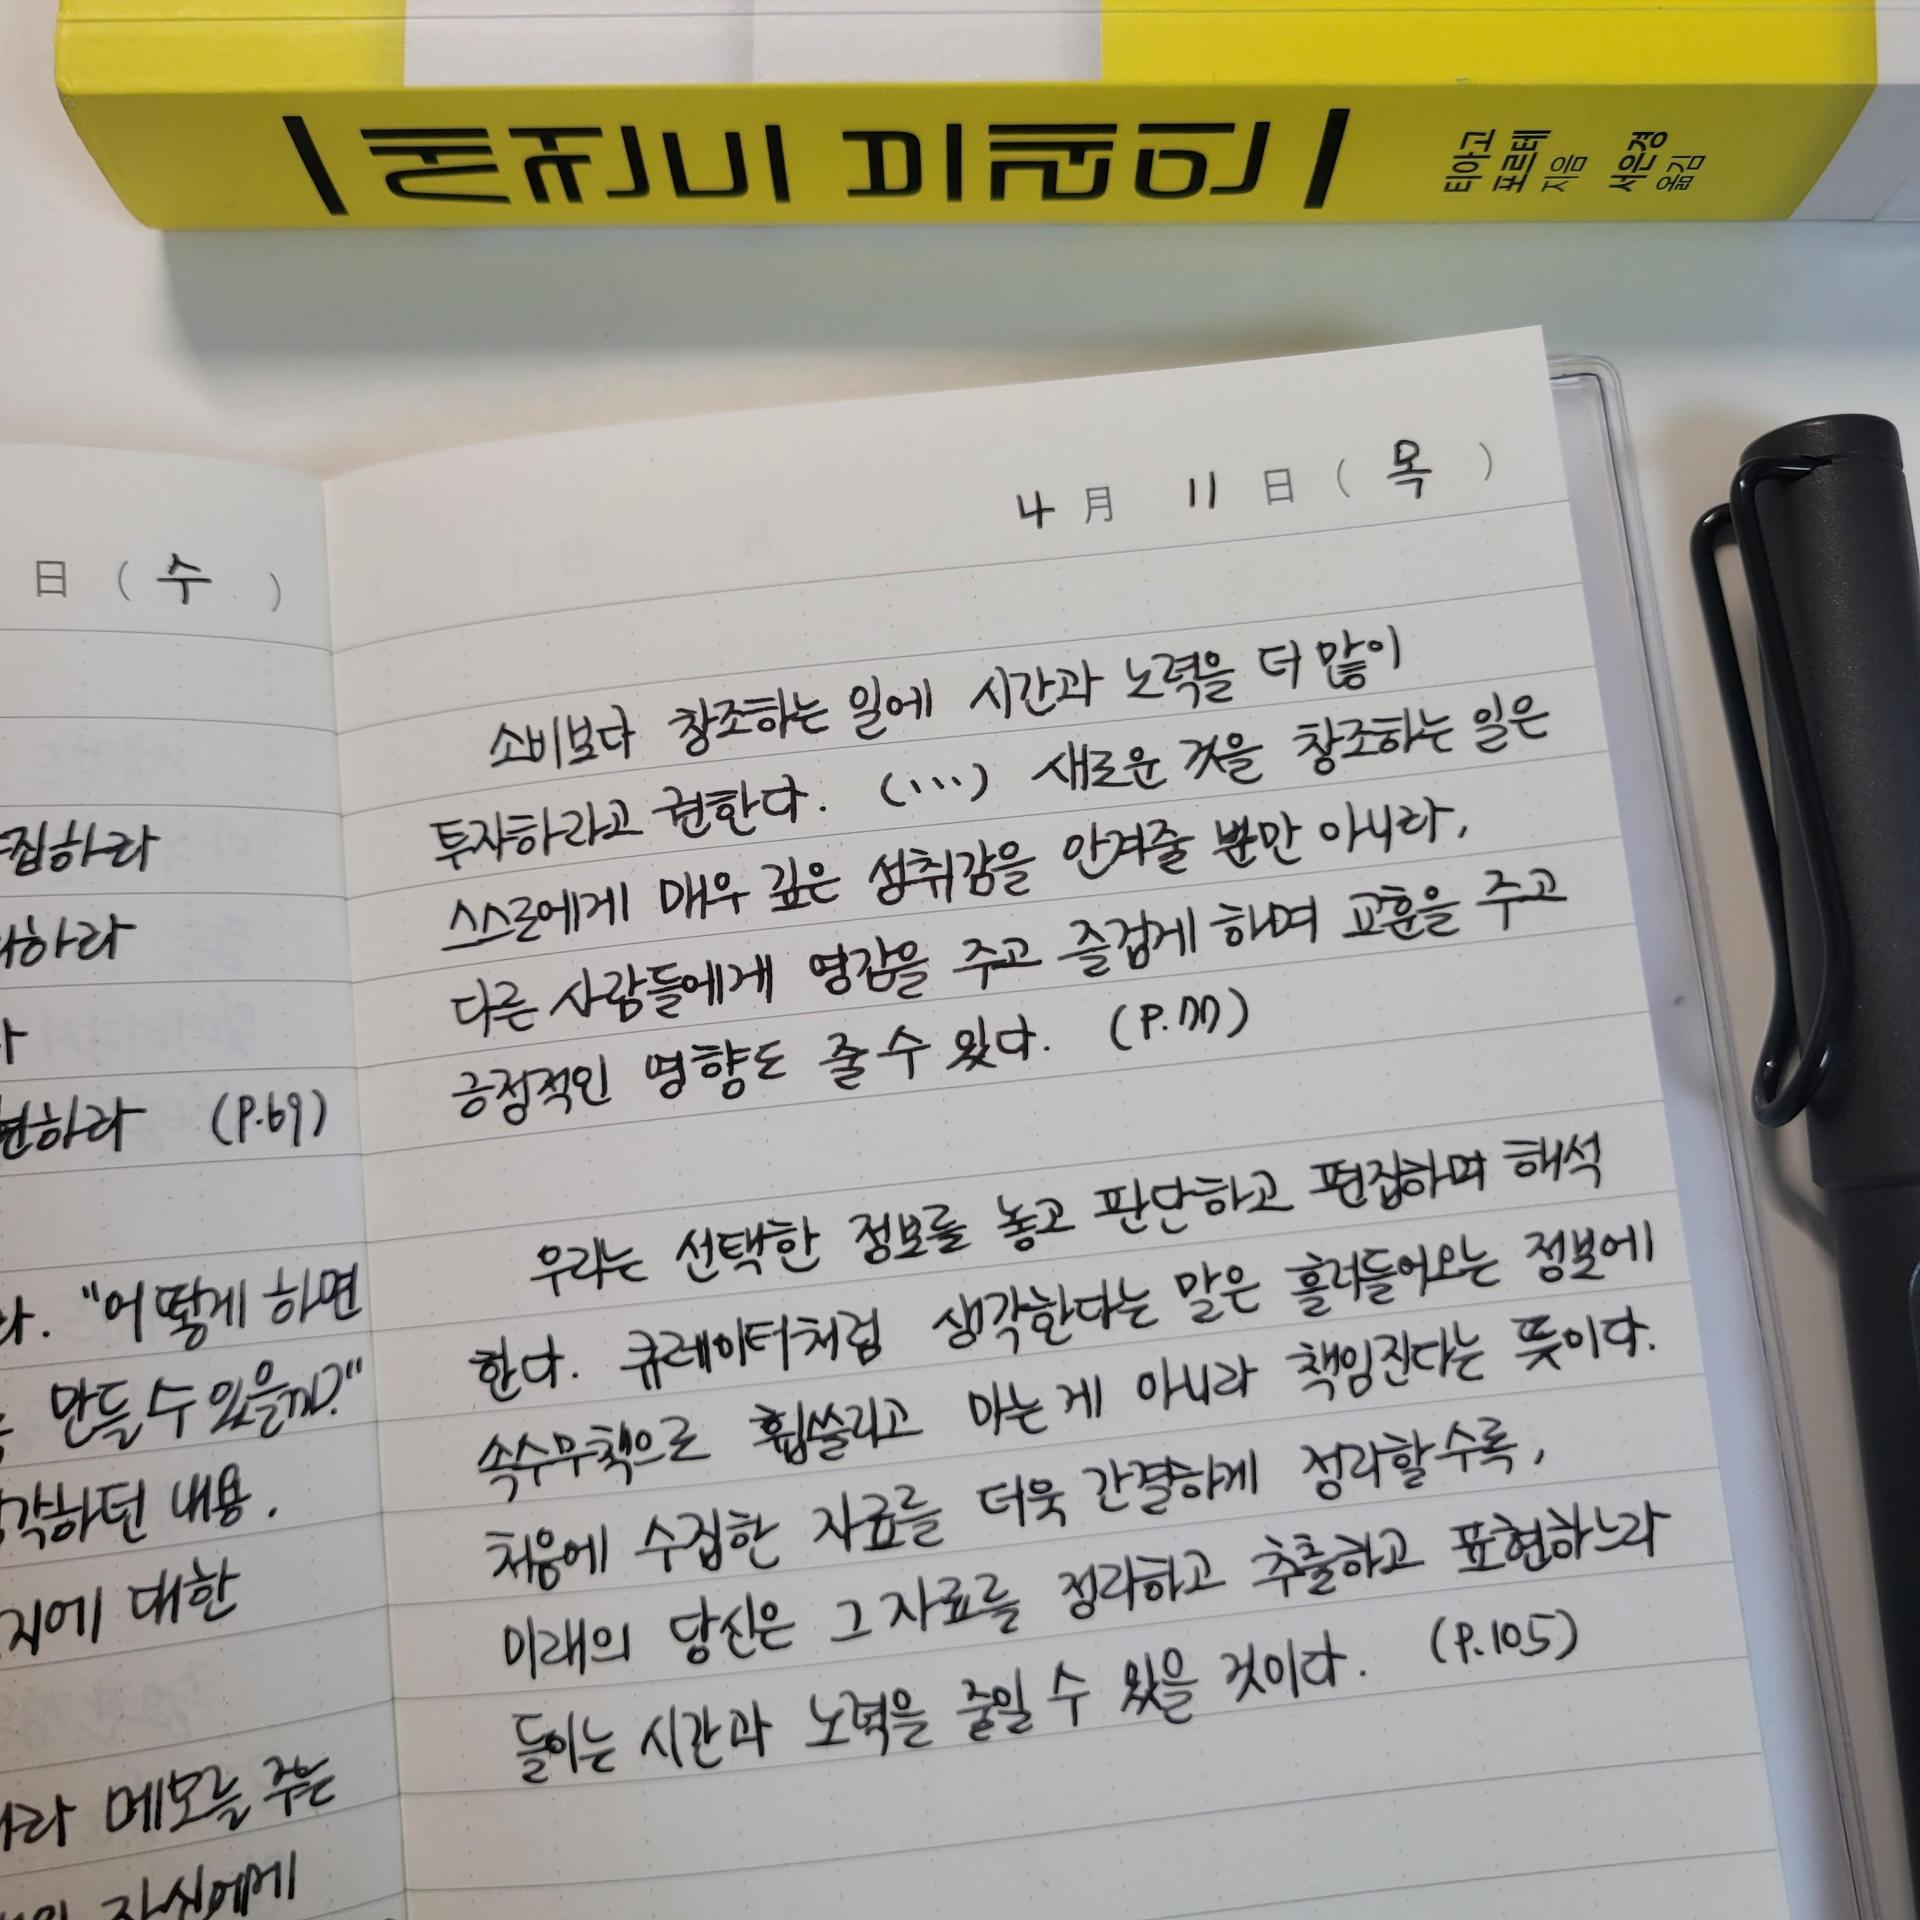 티아고
포르테
지음
서은경
옮김
日 ( 수 )
집하라
하라
현하라 (P.69)
라. "어떻게 하면
만들 수 있을까?"
각하던 내용.
지에 대한
라 메모를 주는
자신에게
4 月 11 日 ( 목 )
소비보다 창조하는 일에 시간과 노력을 더 많이
투자하라고 권한다. (...) 새로운 것을 창조하는 일은
스스로에게 매우 깊은 성취감을 안겨줄 뿐만 아니라,
다른 사람들에게 영감을 주고 즐겁게 하며 교훈을 주고
긍정적인 영향도 줄 수 있다. (P.77)
우리는 선택한 정보를 놓고 판단하고 편집하며 해석
한다. 큐레이터처럼 생각한다는 말은 흘러들어오는 정보에
속수무책으로 휩쓸리고 마는 게 아니라 책임진다는 뜻이다.
처음에 수집한 자료를 더욱 간결하게 정리할수록,
미래의 당신은 그 자료를 정리하고 추출하고 표현하느라
들이는 시간과 노력을 줄일 수 있을 것이다. (P.105)